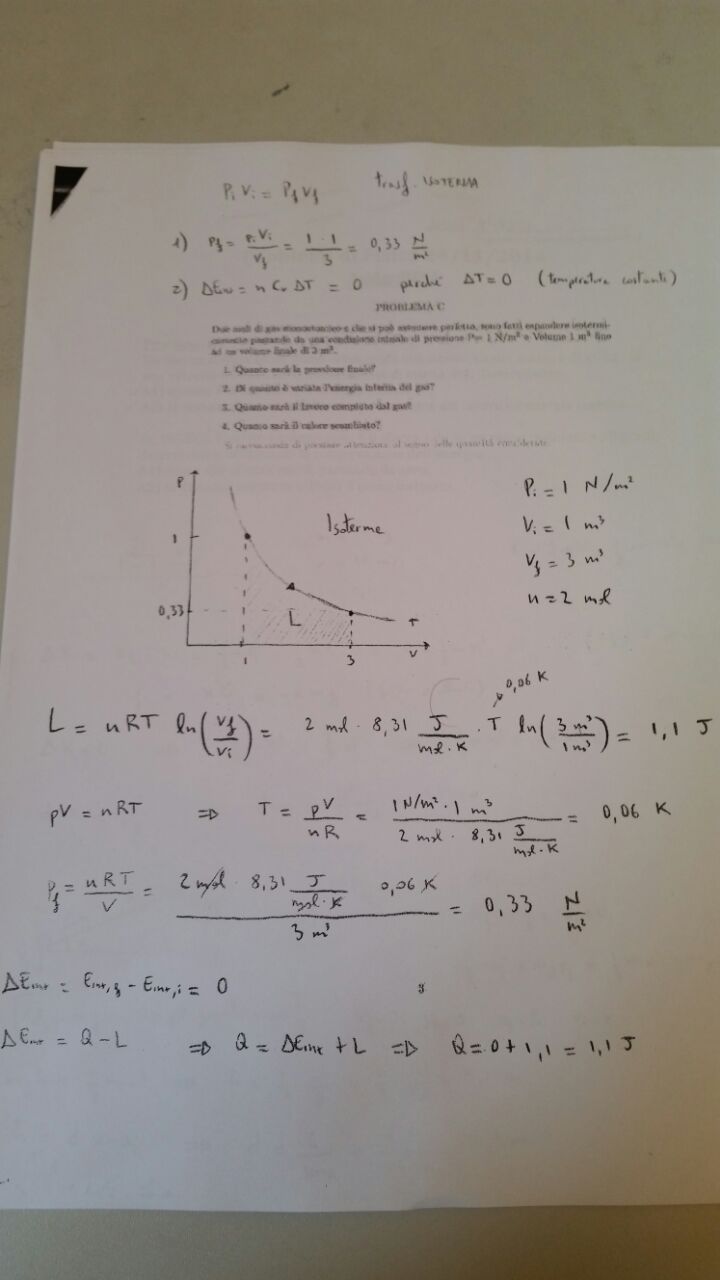 Pi Vi = Pf Vf trasf. ISOTERMA
1) Pf = Pi Vi / Vf = 1 · 1 / 3 = 0,33 N/m²
2) ΔEint = n Cv ΔT = 0 perché ΔT = 0 (temperatura costante)
PROBLEMA C
Due moli di gas monoatomico e che si può assumere perfetto, sono fatti espandere isotermi-
camente partendo da una condizione iniziale di pressione P= 1 N/m² e Volume 1 m³ fino
ad un volume finale di 3 m³.
1. Quanto sarà la pressione finale?
2. Di quanto è variata l'energia interna del gas?
3. Quanto sarà il lavoro compiuto dal gas?
4. Quanto sarà il calore scambiato?
Si raccomanda di prestare attenzione al segno delle quantità considerate.
P
1
0,33
Isoterme
L
T
1
3
V
Pi = 1 N/m²
Vi = 1 m³
Vf = 3 m³
n = 2 mol
0,06 K
L = nRT ln(Vf/Vi) = 2 mol · 8,31 J/mol·K · T ln(3 m³/1 m³) = 1,1 J
pV = nRT => T = pV/nR = 1 N/m² · 1 m³ / 2 mol · 8,31 J/mol·K = 0,06 K
Pf = nRT/V = 2 mol · 8,31 J/mol·K 0,06 K / 3 m³ = 0,33 N/m²
ΔEint = Eint,f - Eint,i = 0
3
ΔEint = Q - L => Q = ΔEint + L => Q = 0 + 1,1 = 1,1 J